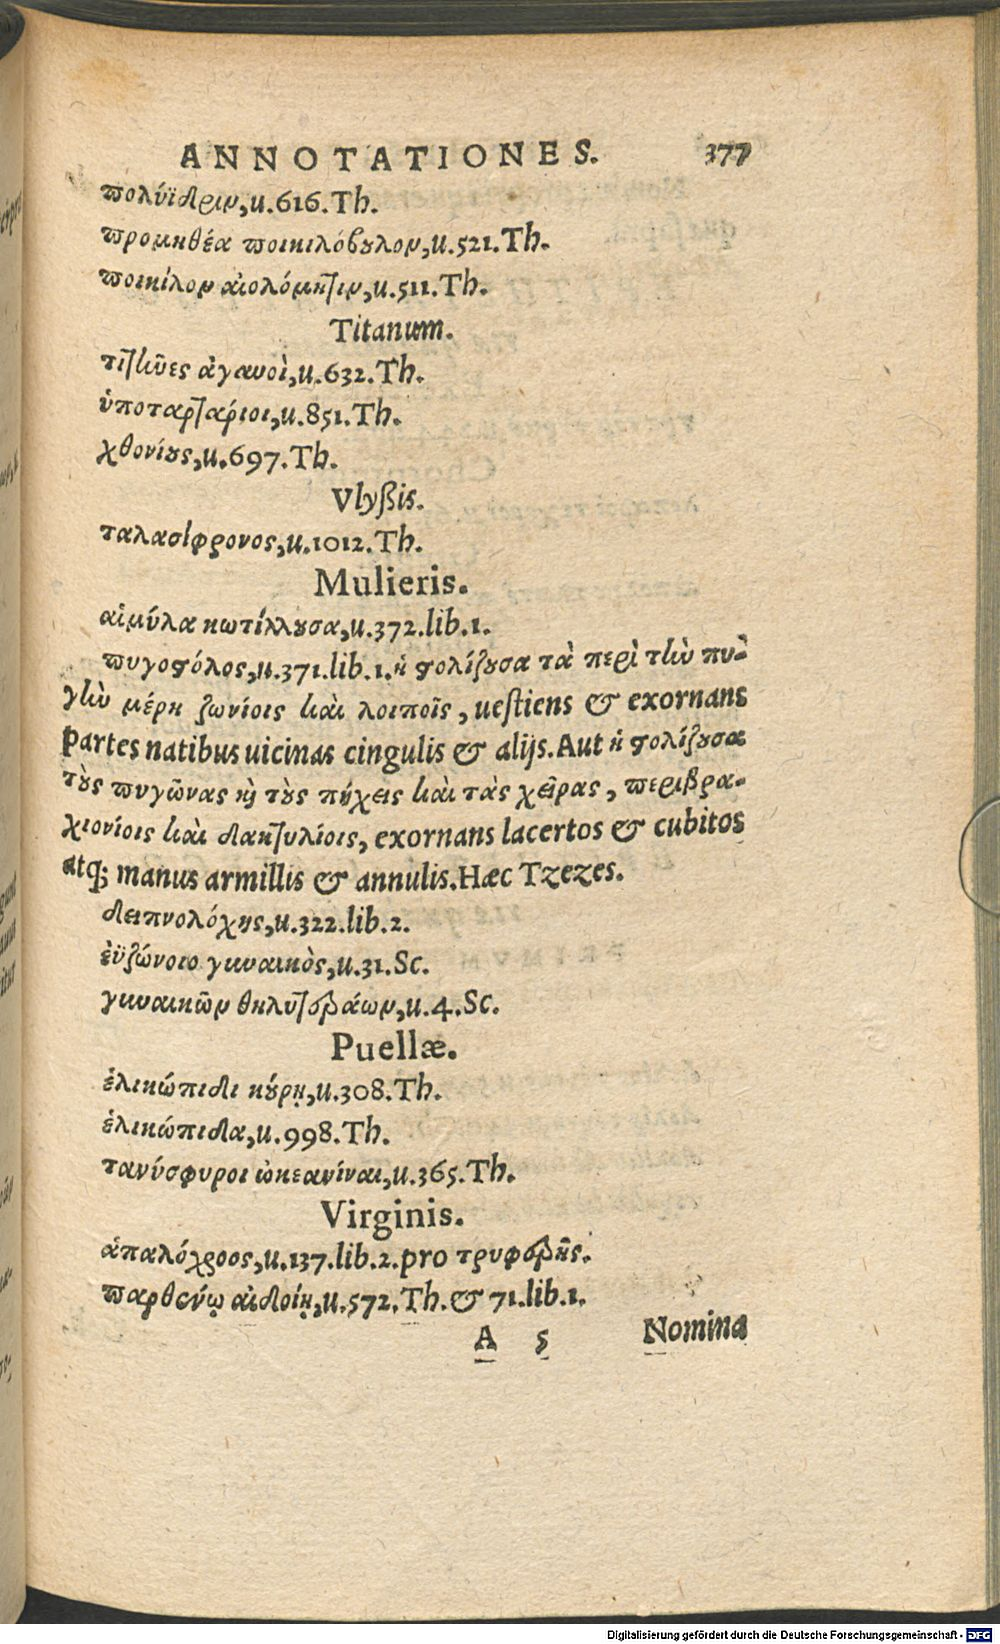 ANNOTATIONES. 377
πολύϊδριν,u.616.Th.
προμηθέα ποικιλόβουλον,u.521.Th.
ποικίλον αἰολόμητιν,u.511.Th.
Titanum.
τιτῆνες ἀγαυοὶ,u.632.Th.
ὑποταρτάριοι,u.851.Th.
χθονίους,u.697.Th.
Vlyßis.
ταλασίφρονος,u.1012.Th.
Mulieris.
αἱμύλα κωτίλλουσα,u.372.lib.1.
πυγοστόλος,u.371.lib.1.ἡ στολίζουσα τὰ περὶ τὴν πυ-
γὴν μέρη ζωνίοις καὶ λοιποῖς, uestiens & exornans
partes natibus uicinas cingulis & alijs. Aut ἡ στολίζουσα
τοὺς πυγῶνας καὶ τοὺς πήχεις καὶ τὰς χεῖρας, περιβρα-
χιονίοις καὶ δακτυλίοις, exornans lacertos & cubitos
atq; manus armillis & annulis. Hæc Tzezes.
δειπνολόχης,u.322.lib.2.
ἐϋζώνοιο γυναικὸς,u.31.Sc.
γυναικῶν θηλυτεράων,u.4.Sc.
Puellæ.
ἑλικώπιδι κούρῃ,u.308.Th.
ἑλικώπιδα,u.998.Th.
τανύσφυροι ὠκεανίναι,u.365.Th.
Virginis.
ἁπαλόχροος,u.137.lib.2.pro τρυφερῆς.
παρθένῳ αἰδοίῃ,u.572.Th.& 71.lib.1.
A 5 Nomina
Digitalisierung gefördert durch die Deutsche Forschungsgemeinschaft - DFG